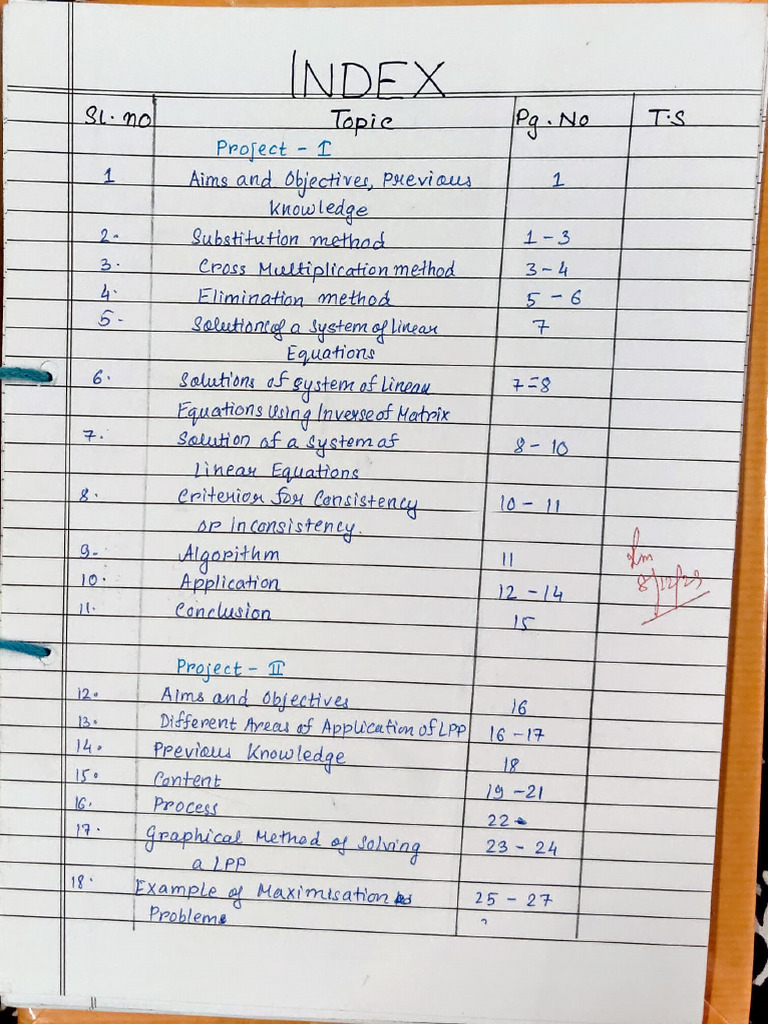 INDEX
Sl. no Topic Pg. No T.S
Project - I
1 Aims and Objectives, Previous 1
Knowledge
2. Substitution method 1 - 3
3. Cross Multiplication method 3 - 4
4. Elimination method 5 - 6
5. Solutions of a system of linear 7
Equations
6. Solutions of system of linear 7 - 8
Equations Using Inverse of Matrix
7. Solution of a system of 8 - 10
Linear Equations
8. Criterior for Consistency 10 - 11
or Inconsistency.
9. Algorithm 11
10. Application 12 - 14
8/12/23
11. Conclusion 15
Project - II
12. Aims and Objectives 16
13. Different Areas of Application of LPP 16 - 17
14. Previous Knowledge 18
15. Content 19 - 21
16. Process 22
17. Graphical Method of Solving 23 - 24
a LPP
18. Example of Maximisation 25 - 27
Problem